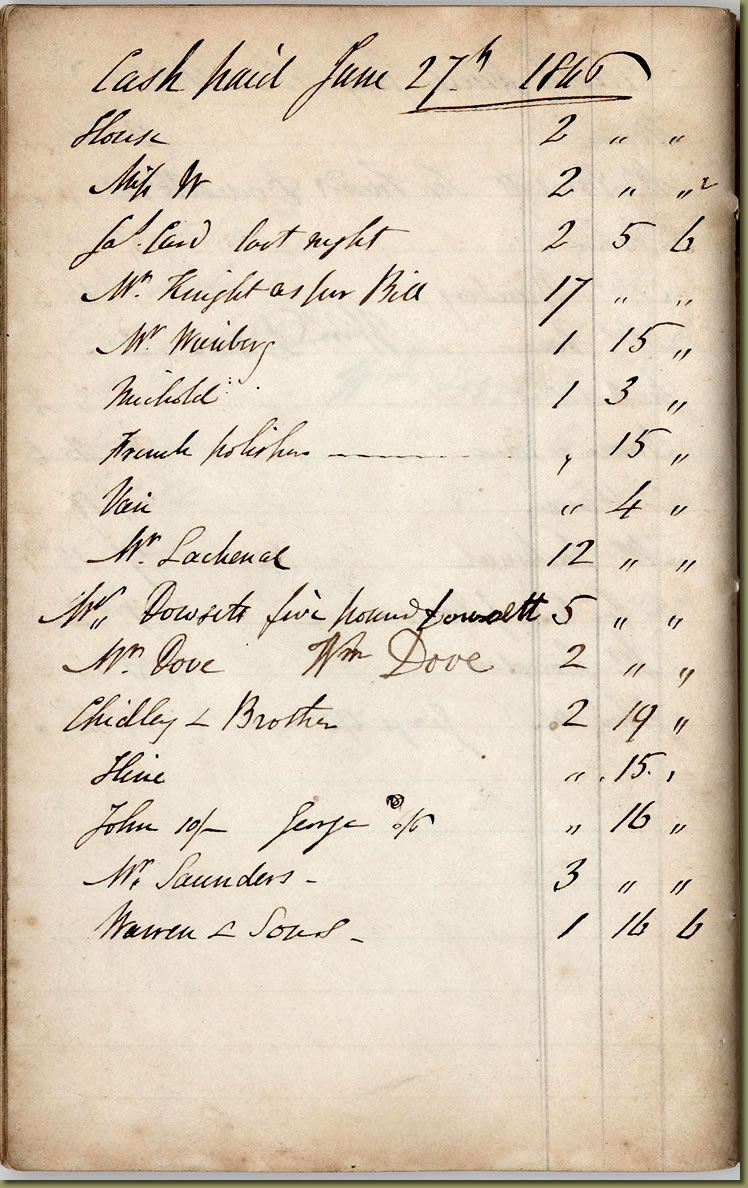 Cash paid June 27th 1846
House 2 " "
Miss W 2 " "
Jos. Card last night 2 5 6
Mr. Knight as per Bill 17 " "
Mr. Weinberg 1 15 "
Michold 1 3 "
French polisher " 15 "
Van " 4 "
Mr. Lachenal 12 " "
Mr. Dowsett five pound Dowsett 5 " "
Mr. Dove Wm Dove 2 " "
Chidley & Brother 2 19 "
Hine " 15 "
John 10/- George 6/ " 16 "
Mr. Saunders - 3 " "
Warren & Sons - 1 16 6